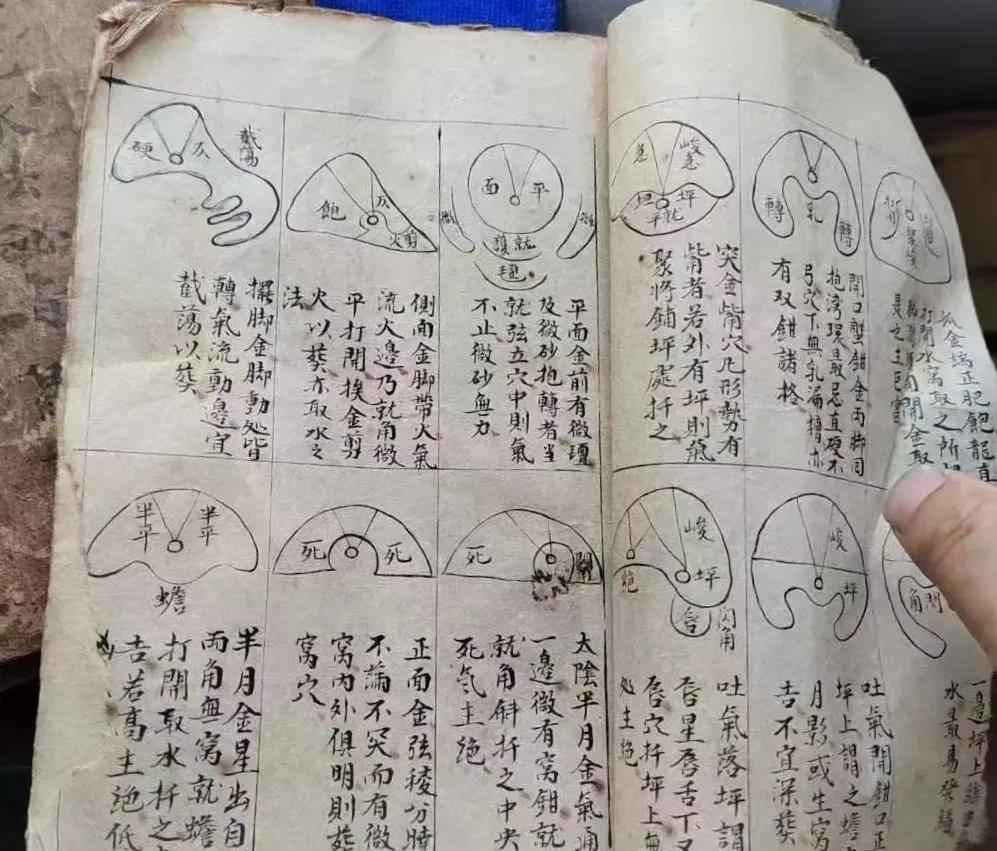 金端正肥飽龍直
打開水窩取之所
轉
乳
轉
開口蟹鉗金兩脚同
抱湾環最忌直硬不
弓穴下無乳漏槽亦
有双鉗諸格
峻急
急
坪
坦
就平
突金觜穴凡形勢有
觜者若外有坪則氣
聚將鋪坪處扦之
平
面
就護
毡
平面金前有微毡
及微砂抱轉者当
就弦立穴中則氣
不止微砂無力
飽
火剪
側面金脚帶火氣
流火邊乃就角微
平打開挨金剪
火以葬亦取水之
法
截蕩
硬
擺脚金脚動処皆
轉氣流動邊宜
截蕩以葬
角
一邊坪上
水最易發
峻
坪
吐氣開鉗口正
坪上謂之蟾
月影或生窩
吉不宜深葬
峻
坪
閃角
吐氣落坪謂
唇星唇舌下又
唇穴扦坪上無
処主絶
死
太陰半月金氣通
一邊微有窝鉗就
就角斜扦之中央
死気主絶
死
死
正面金弦稜分曉
不論不突而有微
窩内外俱明則葬
窩穴
半平
半平
蟾
半月金星出自
両角無窩就蟾
打開取水扦之
吉若高主絶低
凶